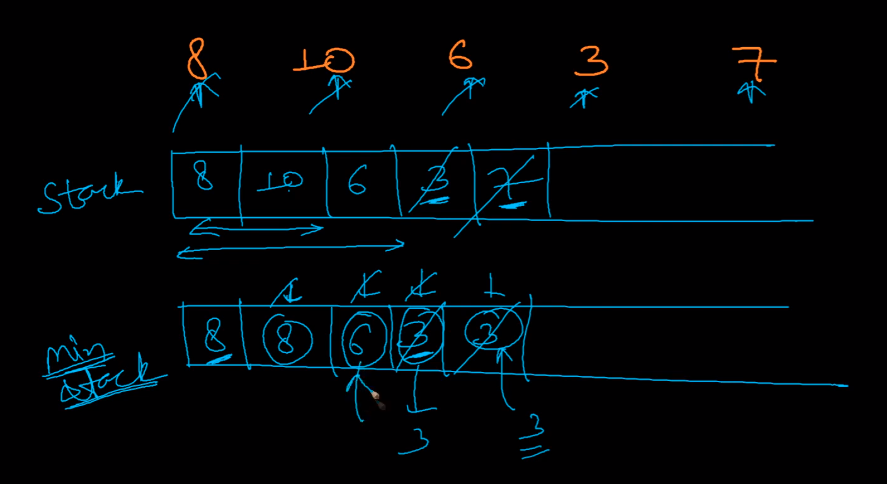 8 10 6 3 7
Stack 8 10 6 3 7
min stack 8 8 6 3 3
3 3